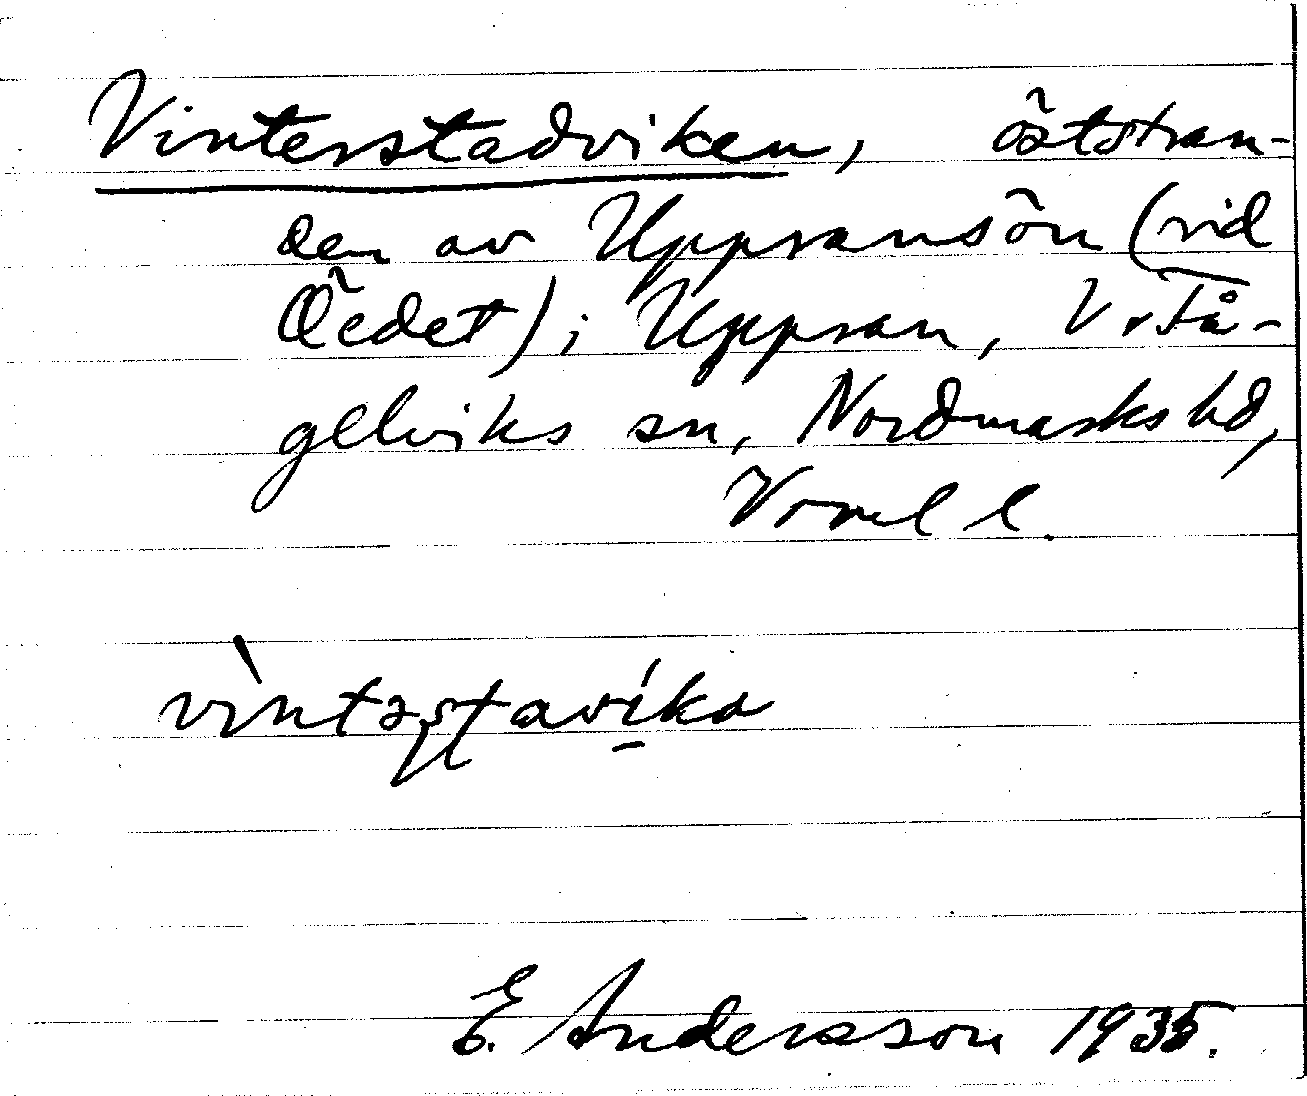 Vinterstadviken, öststran-
den av Uppransön (vid
Öedet) i Uppran, V. Få-
gelviks sn, Nordmarks hd,
Vrml l.
vìntəstavíka
E. Andersson 1935.